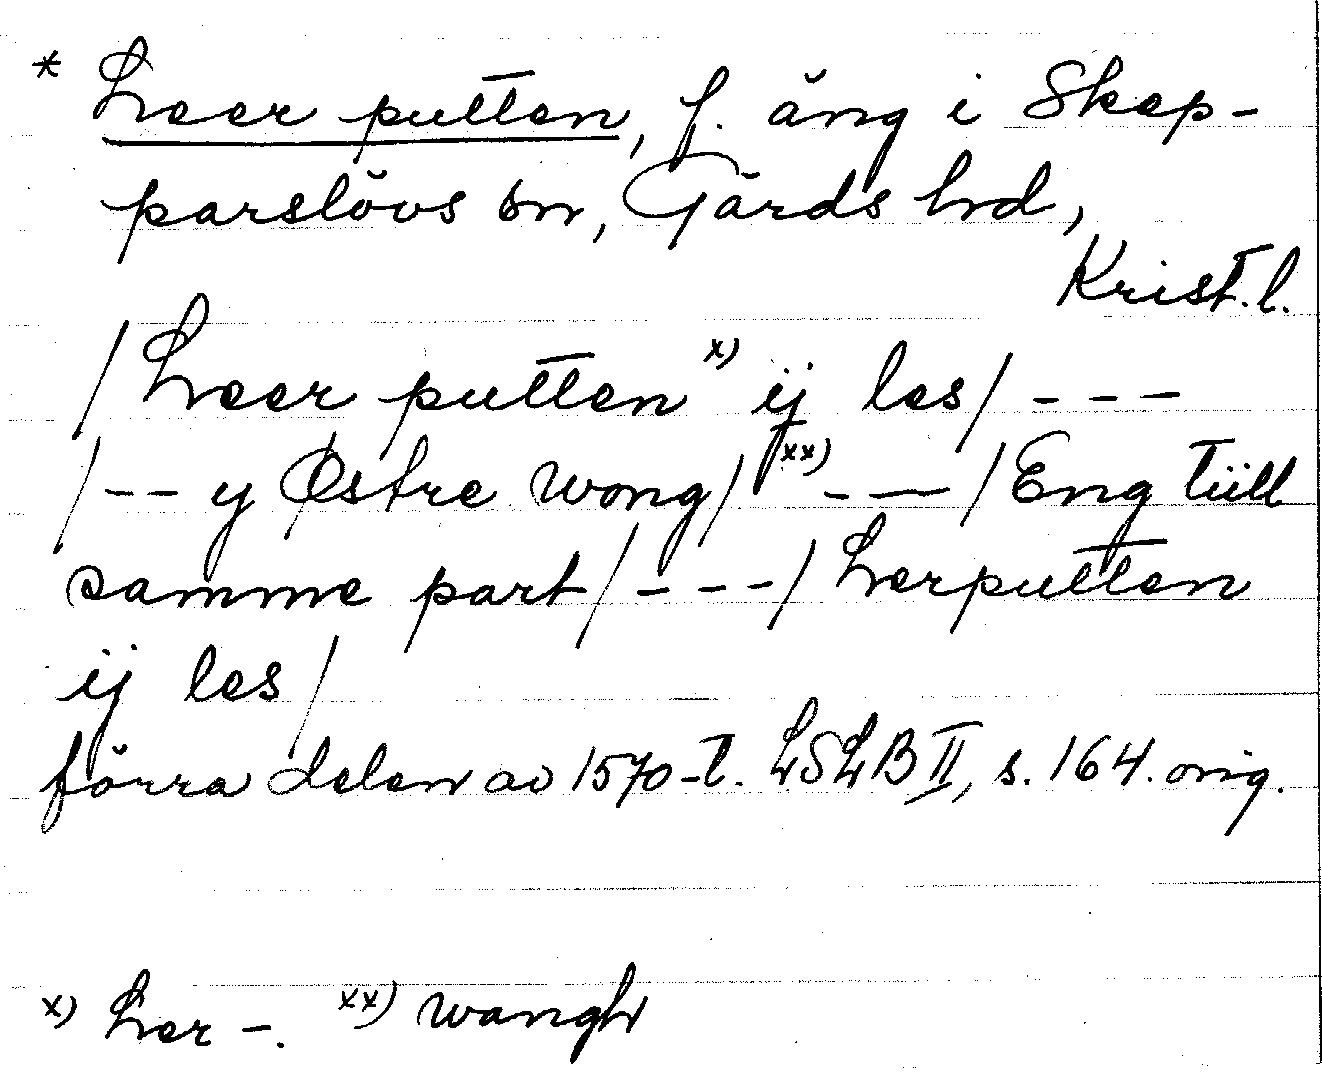 * Leer putten, f. äng i Skep-
parslövs sn, Gärds hd,
Krist. l.
/Leer putten x) ij les/ - - -
/ - - y Østre wong/ xx) - — /Eng tiill
samme part/ - - - / Lerputten
ij les/
förra delen av 1570-t. LSLB II, s. 164. orig.
x) Ler -. xx) wangh